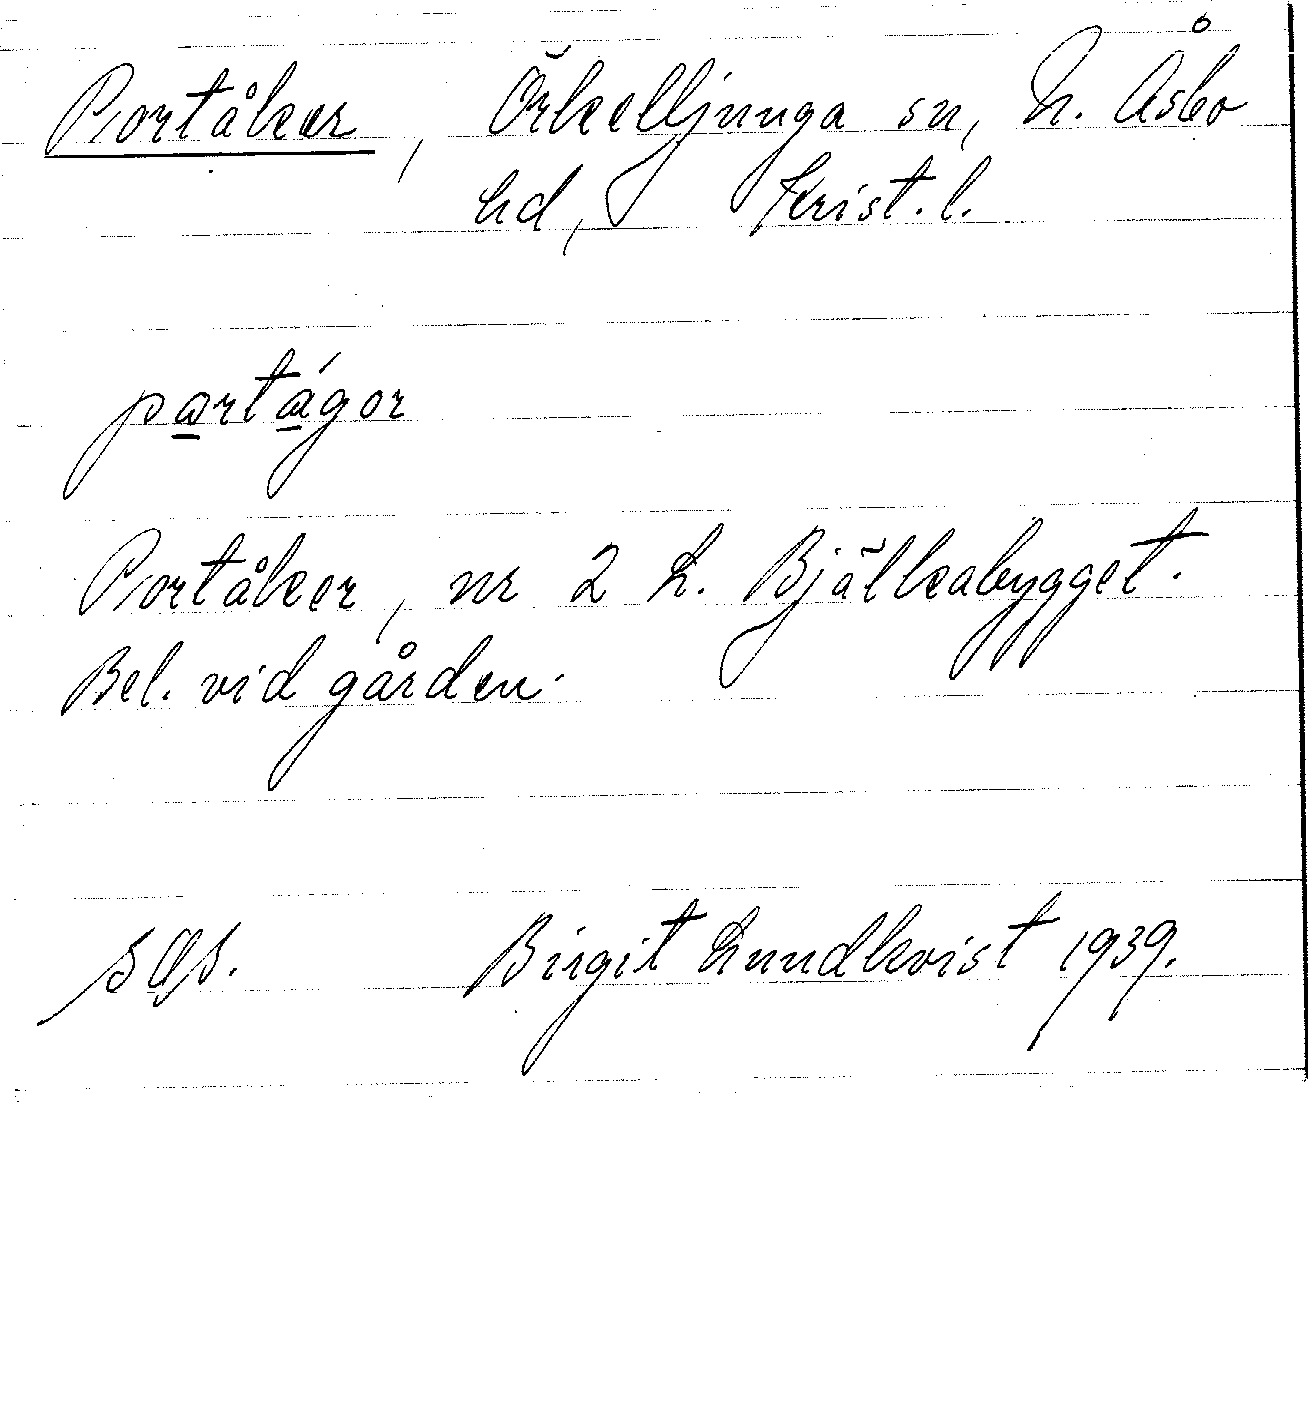 Portåker, Örkelljunga sn, N. Åsbo
hd, Krist. l.
partágor
Portåker, nr 2 L. Bjälkabygget.
Bel. vid gården.
sgs. Birgit Lundkvist 1939.